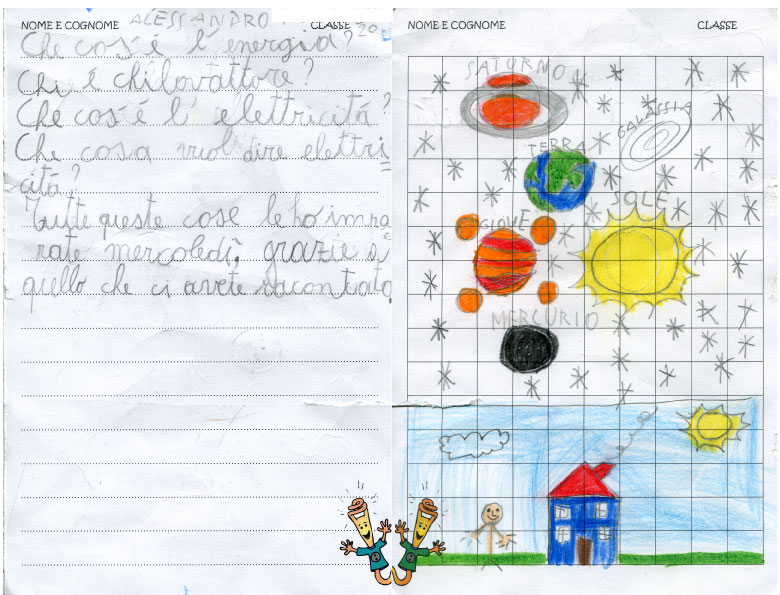 NOME E COGNOME ALESSANDRO CLASSE 2°
Che cos'é l'energia?
Chi é chilovattore?
Che cos'é l'elettricitá?
Che cosa vuol dire elettri
citá?
Tutte queste cose le ho impa
rate mercoledì, grazie a
quello che ci avete racontato
NOME E COGNOME CLASSE
SATURNO
GALASSIA
TERRA
SOLE
GIOVE
MERCURIO